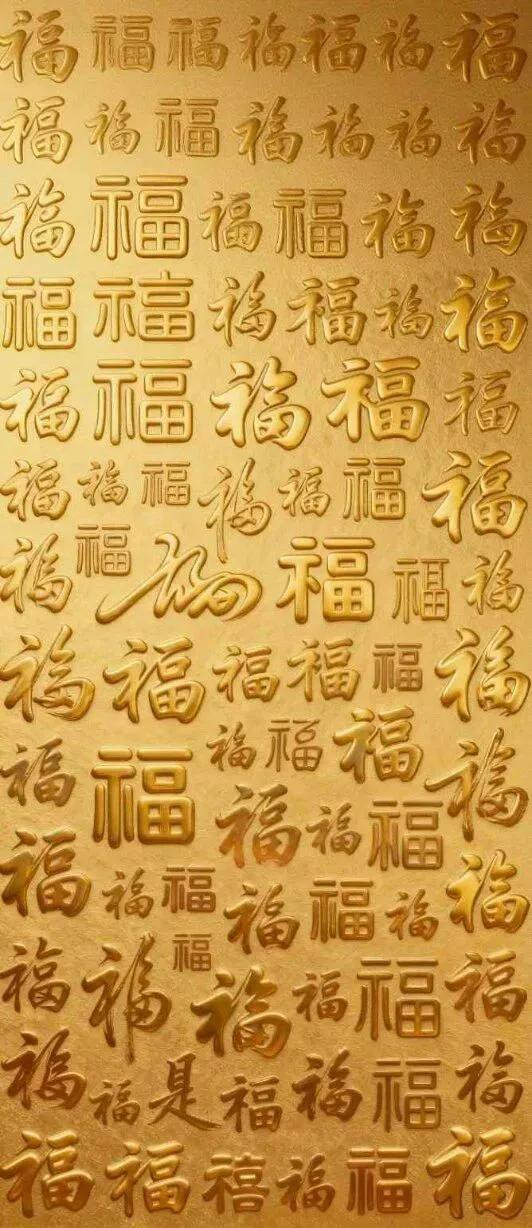 福福福福福福福
福福福福福福福
福福福福福福
福福福福福福
福福福福福
福福福福福福福
福福福福福福
福福福福福福
福福福福福福
福福福福
福福福福福福
福福福福福福福
福福是福福福福
福福禧福福福